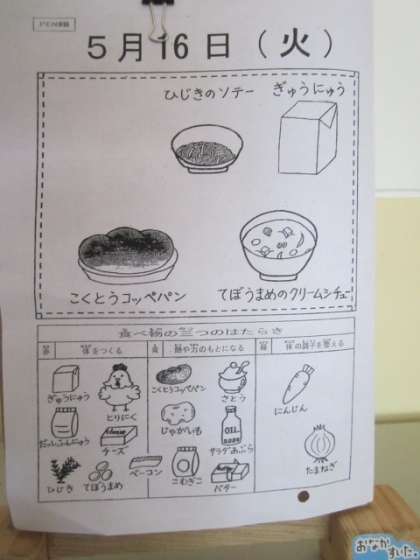 5月16日（火）
ひじきのソテー
ぎゅうにゅう
こくとうコッペパン
てぼうまめのクリームシチュー
食べ物の三つのはたらき
体をつくる
熱や力のもとになる
体の調子を整える
ぎゅうにゅう
とりにく
だっしふんにゅう
チーズ
ひじき
てぼうまめ
ベーコン
こくとうコッペパン
さとう
じゃがいも
OIL
サラダあぶら
こむぎこ
バター
にんじん
たまねぎ
おなかすいた。